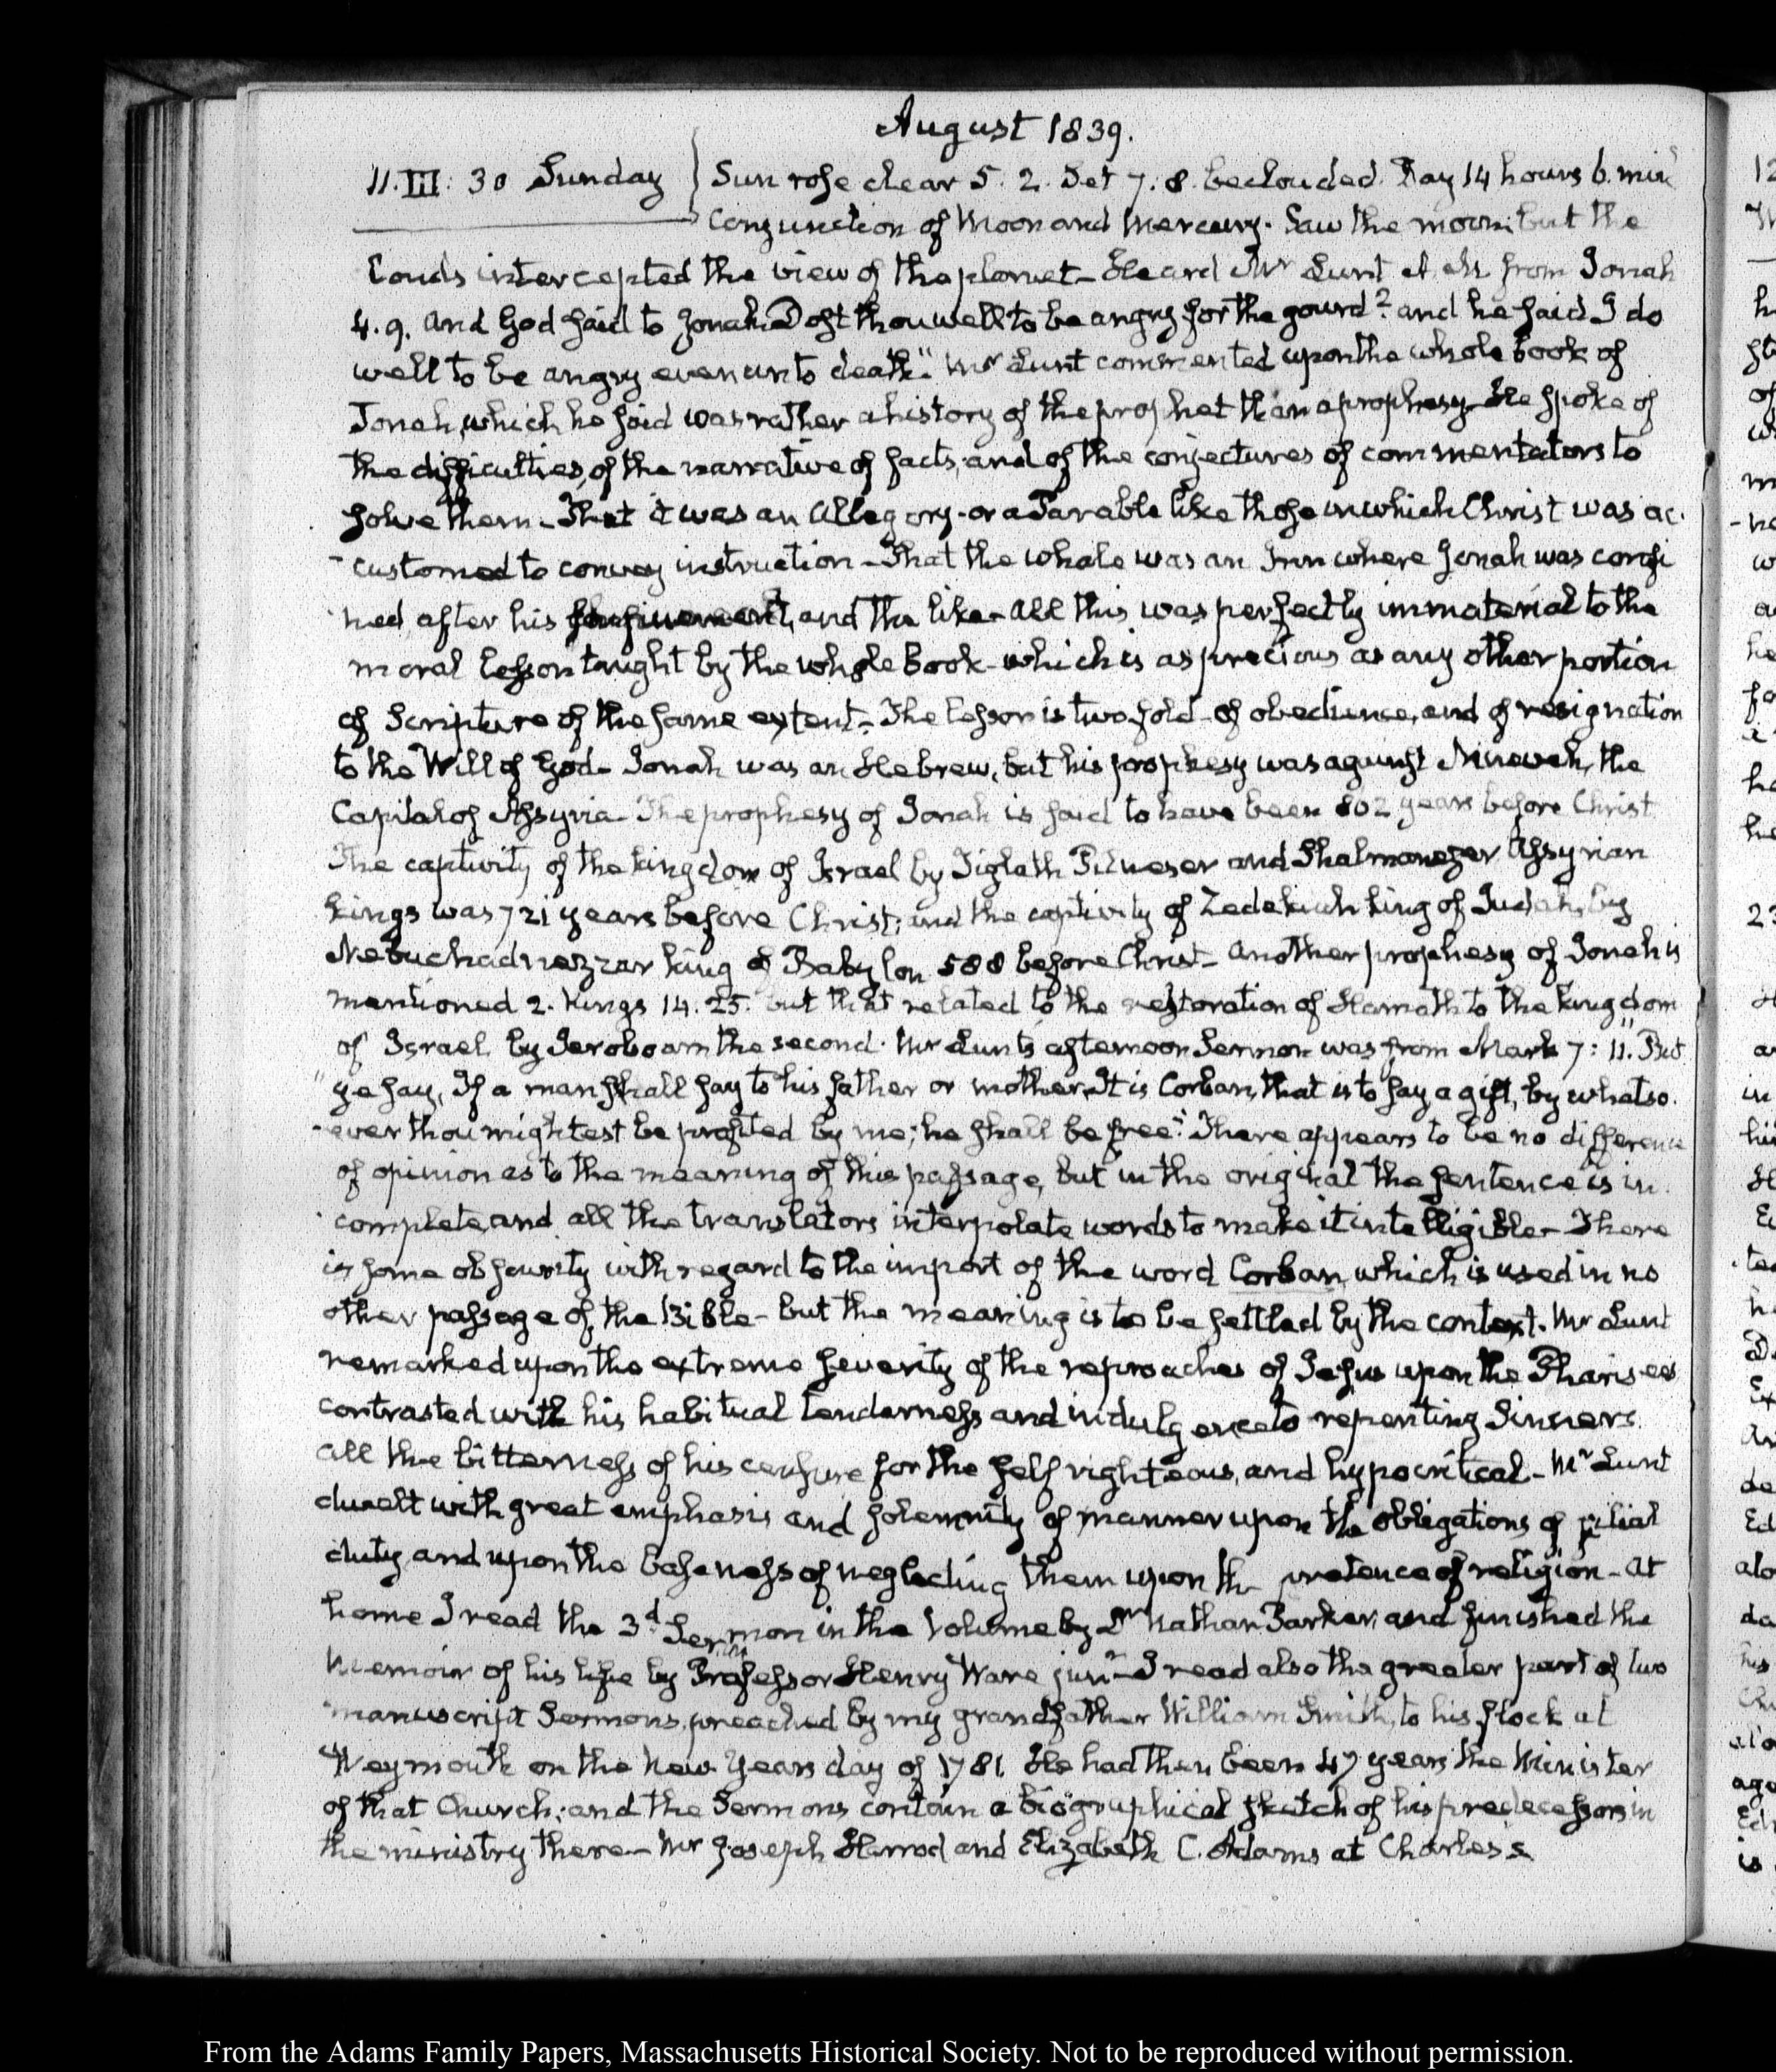 August 1839.
11. III: 30 Sunday } Sun rose clear 5. 2. Set 7: 8. beclouded. Day 14 hours 6. min
Conjunction of Moon and Mercury. Saw the moon; but the
Clouds intercepted the view of the planet – Heard Mr Lunt A.M. from Jonah
4. 9. And God said to Jonah Dost thou well to be angry for the gourd? and he said I do
well to be angry even unto death." Mr Lunt commented upon the whole book of
Jonah, which he said was rather a history of the prophet than a prophesy – He spoke of
the difficulties, of the narrative of facts, and of the conjectures of commentators to
solve them – That it was an Allegory – or a Parable like those in which Christ was ac-
-customed to convey instruction – That the whale was an Inn where Jonah was confi
ned after his and the like – All this was perfectly immaterial to the
moral lesson taught by the whole book – which is as precious as any other portion
of Scripture of the same extent – The lesson is two fold – of obedience, and of resignation
to the Will of God – Jonah was an Hebrew, but his prophesy was against Nineveh, the
Capital of Assyria – The prophesy of Jonah is said to have been 802 years before Christ
The captivity of the kingdom of Israel by Tiglath Pilneser and Shalmanezer Assyrian
kings was 721 years before Christ; and the captivity of Zedekiah king of Judah, by
Nebuchadnezzar king of Babylon 588 before Christ – Another prophesy of Jonah is
mentioned 2. Kings 14. 25. but that related to the restoration of Hamath to the kingdom
of Israel by Jeroboam the second. Mr Lunt's afternoon Sermon was from Mark 7: 11. "But
"ye say, If a man shall say to his father or mother, It is Corban, that is to say a gift, by whatso-
-ever thou mightest be profited by me; he shall be free." There appears to be no difference
of opinion as to the meaning of this passage, but in the original the sentence is in-
-complete, and all the translators interpolate words to make it intelligible – There
is some obscurity with regard to the import of the word Corban, which is used in no
other passage of the Bible – but the meaning is to be settled by the context. Mr Lunt
remarked upon the extreme severity of the reproaches of Jesus upon the Pharisees
contrasted with his habitual tenderness and indulgence to repenting Sinners.
All the bitterness of his censure for the self righteous, and hypocritical – Mr Lunt
dwelt with great emphasis and solemnity of manner upon the obligations of filial
duty and upon the baseness of neglecting them upon the pretence of religion – At
home I read the 3d Sermon in the Volume by Dr Nathan Parker, and finished the
Memoir of his life by Professor Henry Ware junr – I read also the greater part of two
manuscript Sermons, preached by my grandfather William Smith, to his flock at
Weymouth on the New Years day of 1781. He had then been 47 years the Minister
of that Church; and the Sermons contain a biographical sketch of his predecessors in
the ministry there – Mr Joseph Harrod and Elizabeth C. Adams at Charles's
From the Adams Family Papers, Massachusetts Historical Society. Not to be reproduced without permission.